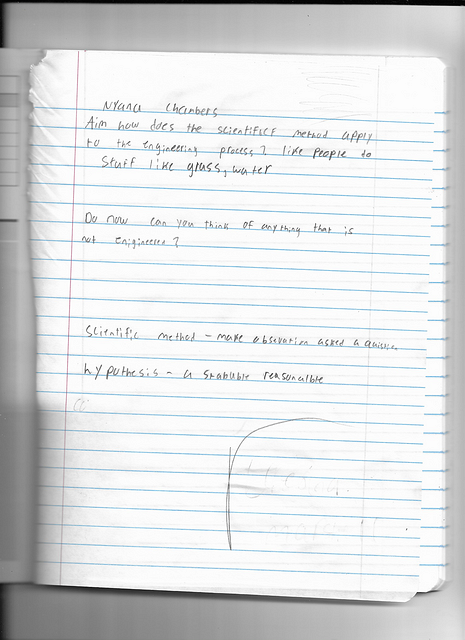 Nyana Chambers
Aim how does the scientific method apply
to the engineering process? like people do
stuff like grass, water
Do now can you think of anything that is
not enigineered?
Scientific method - make obsevation asked a
hypothesis - a reasonalble